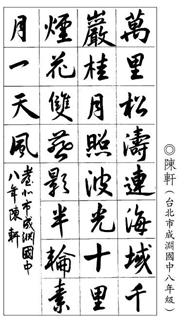 ◎陳軒（台北市成淵國中八年級）
萬里松濤連海域千
巖桂月照波光十里
煙花雙燕影半輪素
月一天風
臺北市成淵國中
八年陳軒